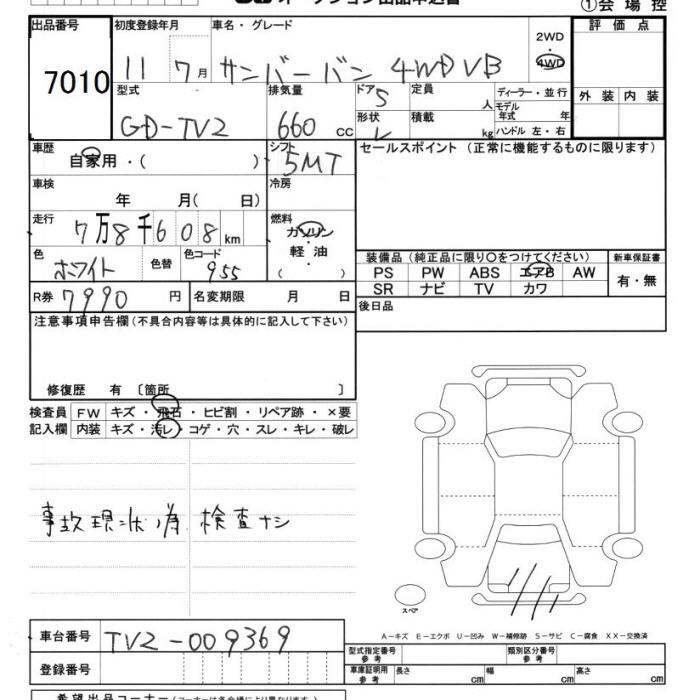 ①会場控
出品番号 初度登録年月 車名・グレード 2WD 評価点
7010 11 7月 サンバーバン 4WD VB 4WD
型式 排気量 ドア 定員 ディーラー・並行 外装 内装
GD-TV2 660cc 5 人 モデル年式 年
形状 積載 kg ハンドル 左・右
V
車歴 シフト セールスポイント (正常に機能するものに限ります)
自家用・( ) 5MT
車検 冷房
年 月( 日)
走行 燃料
7万8千608km ガソリン・軽油
( )
色 色替 色コード 装備品(純正品に限り〇をつけてください) 新車保証書
ホワイト 955 PS PW ABS エアB AW 有・無
SR ナビ TV カワ
R券 7990円 名変期限 月 日 後日品
注意事項申告欄(不具合内容等は具体的に記入して下さい)
修復歴 有 〔箇所 〕
検査員 FW キズ・飛石・ヒビ割・リペア跡・×要
記入欄 内装 キズ・汚レ・コゲ・穴・スレ・キレ・破レ
事故現状ノ為 検査ナシ
スペア
A-キズ E-エクボ U-凹み W-補修跡 S-サビ C-腐食 XX-交換済
車台番号 TV2-009369
型式指定番号 参考 類別区分番号 参考
登録番号 車庫証明用 参考 長さ cm 幅 cm 高さ cm